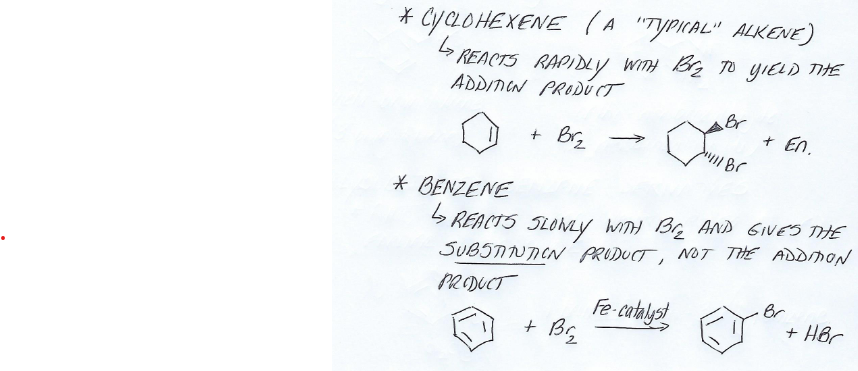 * CYCLOHEXENE (A "TYPICAL" ALKENE)
↳ REACTS RAPIDLY WITH Br₂ TO YIELD THE
ADDITION PRODUCT
+ Br₂ → Br Br + En.
* BENZENE
↳ REACTS SLOWLY WITH Br₂ AND GIVES THE
SUBSTITUTION PRODUCT, NOT THE ADDITION
PRODUCT
+ Br₂ Fe-catalyst → Br + HBr